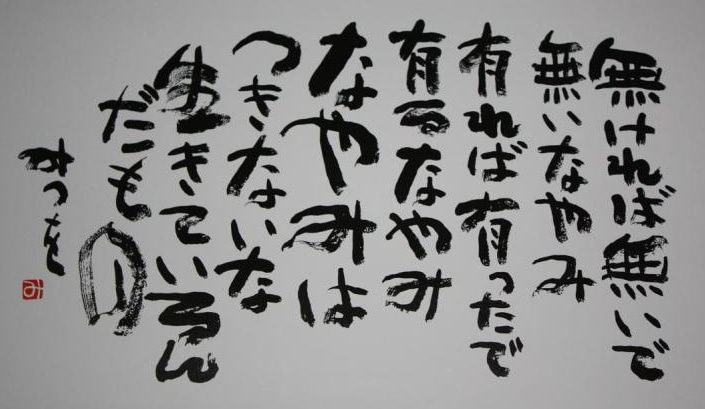 無ければ無いで
無いなやみ
有れば有ったで
有るなやみ
なやみは
つきないな
生きているん
だもの
みつを
み